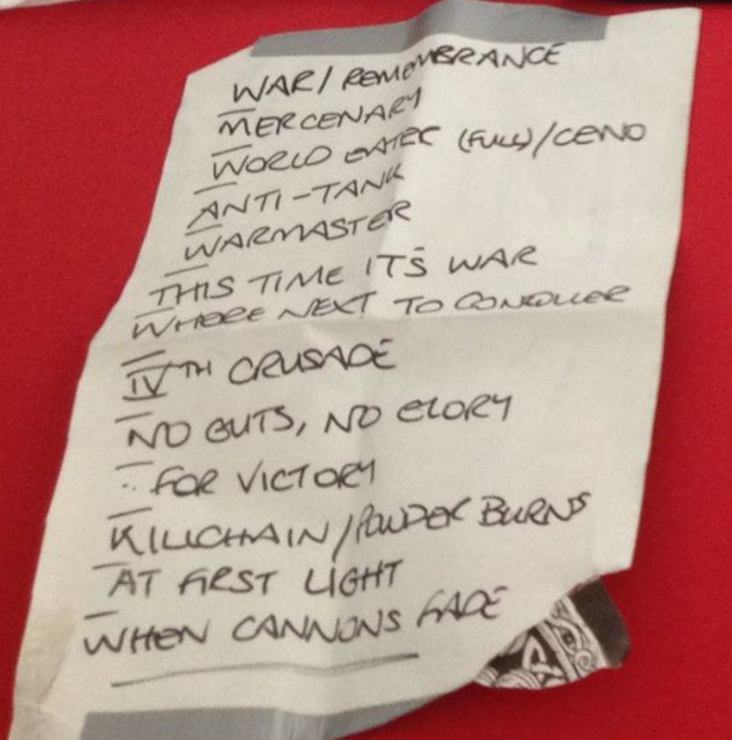 WAR/REMEMBRANCE
MERCENARY
WORLD EATER (FULL)/CENO
ANTI-TANK
WARMASTER
THIS TIME IT'S WAR
WHERE NEXT TO CONQUER
IVTH CRUSADE
NO GUTS, NO GLORY
..FOR VICTORY
KILLCHAIN/POWDER BURNS
AT FIRST LIGHT
WHEN CANNONS FADE